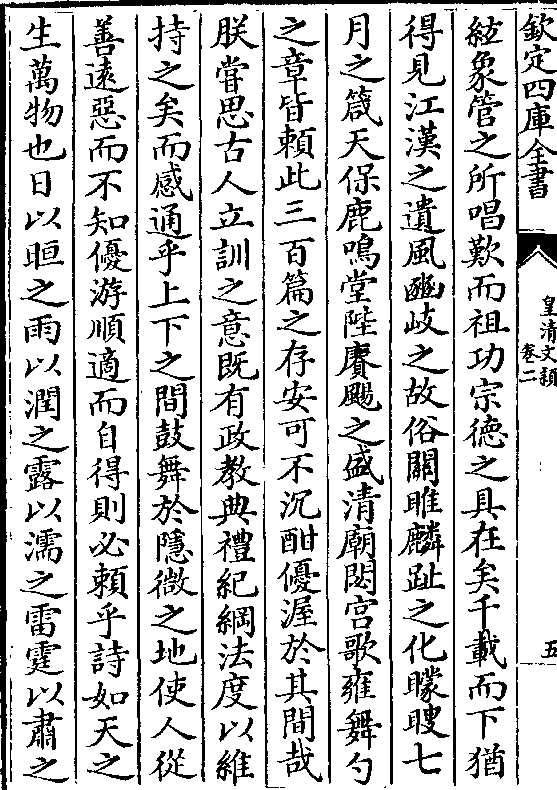 欽定四庫全書
皇清文穎
卷二
五
絃象管之所唱歎而祖功宗徳之具在矣千載而下猶
得見江漢之遺風豳岐之故俗關雎麟趾之化矇瞍七
月之箴天保鹿鳴堂陛賡颺之盛清廟閟宫歌雍舞勺
之章皆頼此三百篇之存安可不沉酣優渥於其間哉
朕嘗思古人立訓之意既有政教典禮紀綱法度以維
持之矣而感通乎上下之間鼓舞於隱微之地使人從
善逺惡而不知優游順適而自得則必頼乎詩如天之
生萬物也日以晅之雨以潤之露以濡之雷霆以肅之